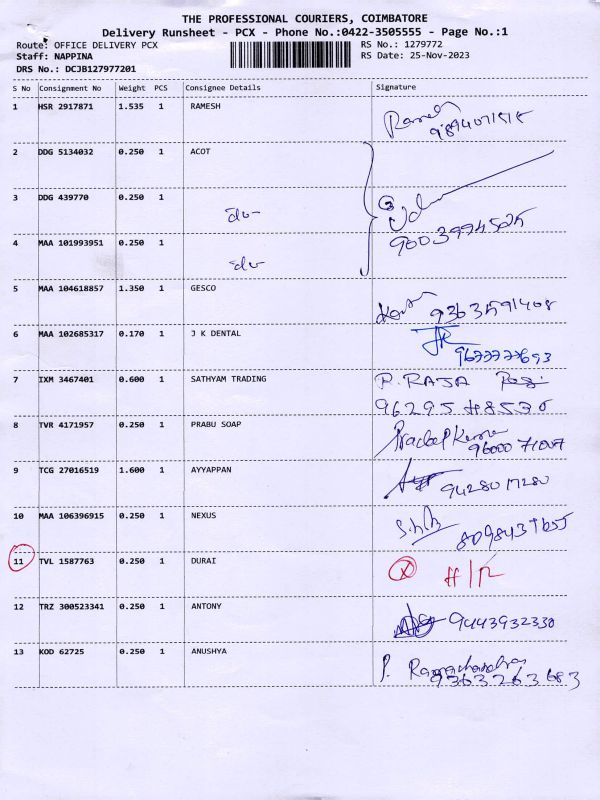 THE PROFESSIONAL COURIERS, COIMBATORE
Delivery Runsheet - PCX - Phone No.:0422-3505555 - Page No.:1
Route: OFFICE DELIVERY PCX
Staff: NAPPINA
DRS No.: DCJB127977201
RS No.: 1279772
RS Date: 25-Nov-2023
S No Consignment No Weight PCS Consignee Details Signature
1 HSR 2917871 1.535 1 RAMESH
2 DDG 5134032 0.250 1 ACOT
3 DDG 439770 0.250 1
4 MAA 101993951 0.250 1
5 MAA 104618857 1.350 1 GESCO
9363591408
6 MAA 102685317 0.170 1 J K DENTAL
7 IXM 3467401 0.600 1 SATHYAM TRADING
P. RAJA
8 TVR 4171957 0.250 1 PRABU SOAP
9 TCG 27016519 1.600 1 AYYAPPAN
10 MAA 106396915 0.250 1 NEXUS
11 TVL 1587763 0.250 1 DURAI
12 TRZ 300523341 0.250 1 ANTONY
9443932330
13 KOD 62725 0.250 1 ANUSHYA
P. Ramachandran
9363263683